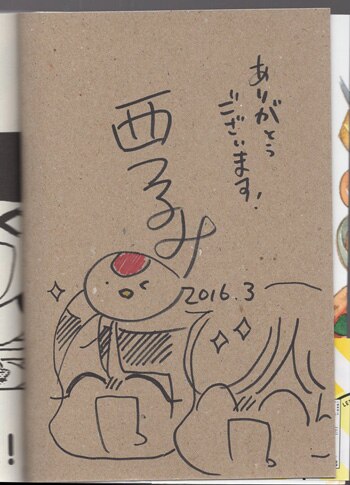 ありがとう
ございます!
西つるみ
2016.3
!!